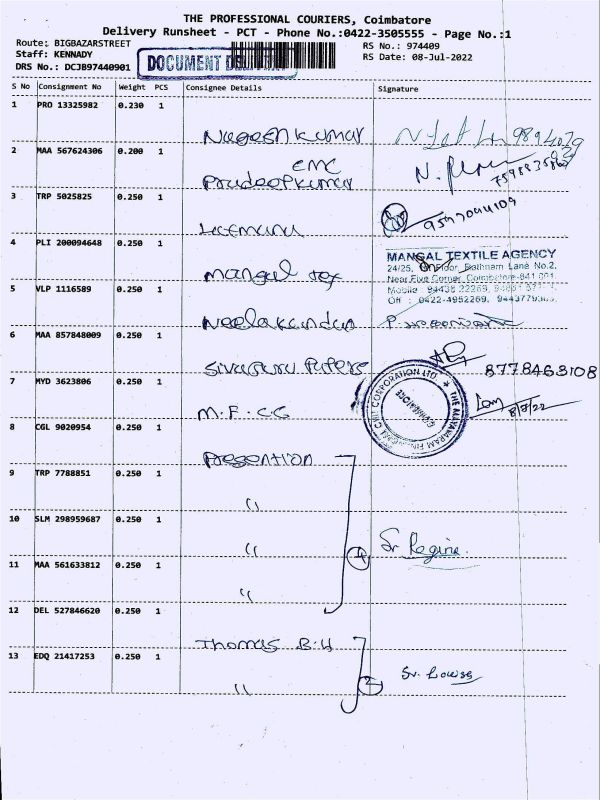 THE PROFESSIONAL COURIERS, Coimbatore
Delivery Runsheet - PCT - Phone No.:0422-3505555 - Page No.:1
Route: BIGBAZARSTREET
RS No.: 974409
Staff: KENNADY
RS Date: 08-Jul-2022
DRS No.: DCJB97440901
DOCUMENT
S No Consignment No Weight PCS Consignee Details Signature
1 PRO 13325982 0.230 1
Nageshkumar
2 MAA 567624306 0.200 1
EMC
Pradeepkumar
3 TRP 5025825 0.250 1
9597044109
4 PLI 200094648 0.250 1
Mangal Tex
MANGAL TEXTILE AGENCY
24/25, Floor, Rathnam Lane No.2,
Near Five Corner, Coimbatore-641 001.
Mobile : 94436 22269,
Off : 0422-4952269,
5 VLP 1116589 0.250 1
Neelakandan
6 MAA 857848009 0.250 1
Sivaguru Papers
8778463108
7 MYD 3623806 0.250 1
M.F.CC
8/7/22
COIMBATORE
8 CGL 9020954 0.250 1
Presention
9 TRP 7788851 0.250 1
"
10 SLM 298959687 0.250 1
"
4
Sr Regina.
11 MAA 561633812 0.250 1
"
12 DEL 527846620 0.250 1
Thomas B.H
13 EDQ 21417253 0.250 1
"
2
Sr. Lowse